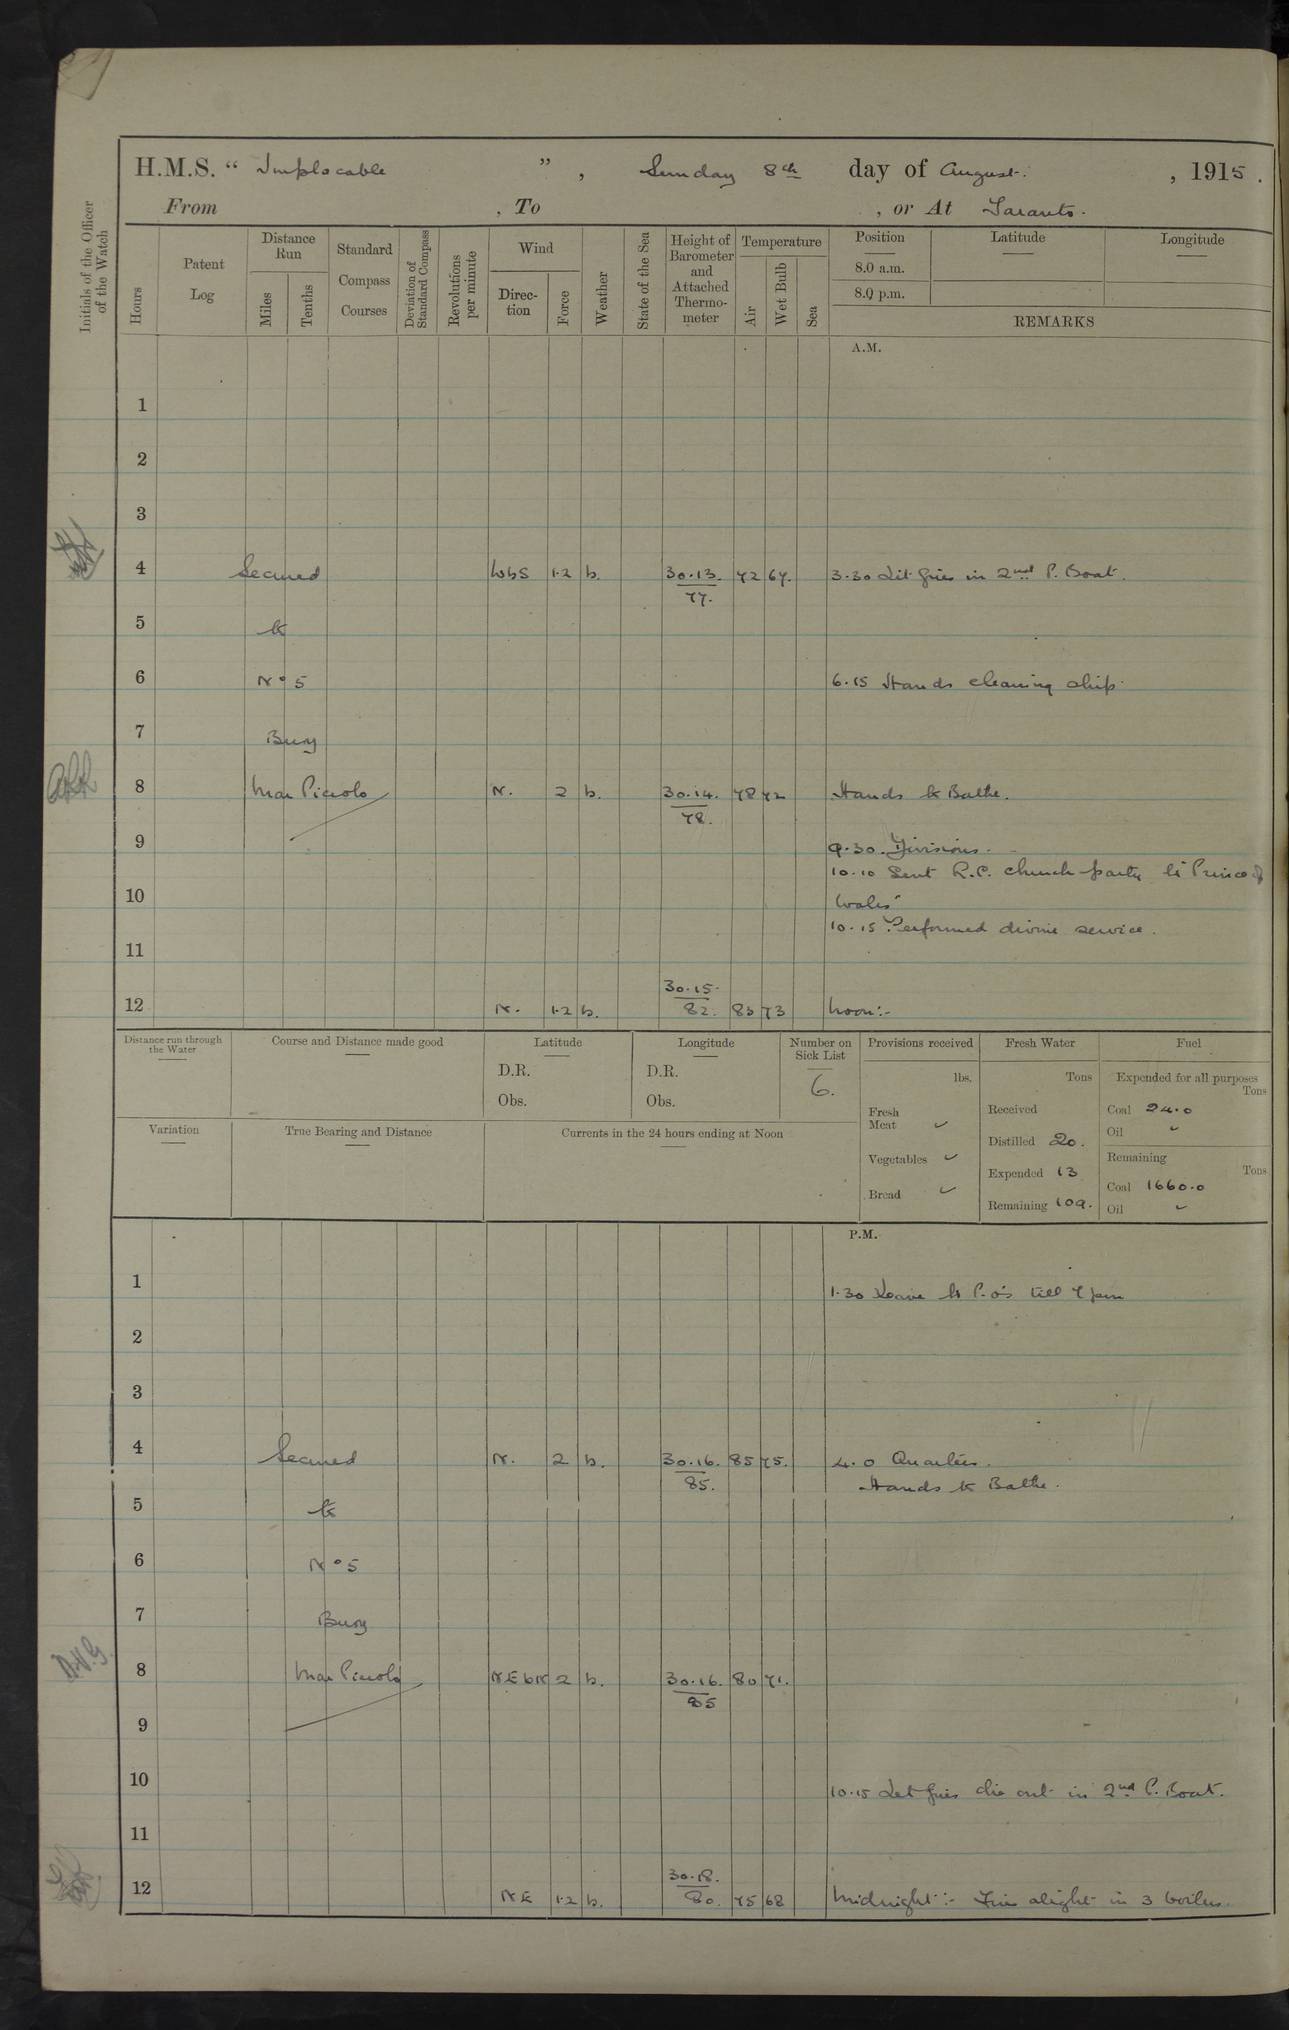 H.M.S. “ Implacable ” , Sunday 8th day of August. , 1915.
From , To , or At Taranto.
Initials of the Officer of the Watch
Hours
Patent Log
Distance Run
Miles
Tenths
Standard Compass Courses
Deviation of Standard Compass
Revolutions per minute
Wind
Direc-tion
Force
Weather
State of the Sea
Height of Barometer and Attached Thermo-meter
Temperature
Air
Wet Bulb
Sea
Position
Latitude
Longitude
8.0 a.m.
8.0 p.m.
REMARKS
A.M.
1
2
3
4 Secured WbS 1.2 b. 30.13. 72 67. 3.30 Lit fires in 2nd P. Boat.
77.
5 to
6 No 5 6.15 Hands cleaning ship.
7 Buoy
8 Mar Piccolo N. 2 b. 30.14. 78 72 Hands to Bathe.
78.
9 9.30. Divisions.
10.10 Sent R.C. church party to Prince of
10 Wales"
10.15 Performed divine service.
11
30.15.
12 N. 1.2 b. 82. 83 73 Noon:-
Distance run through the Water
Course and Distance made good
Latitude
D.R.
Obs.
Longitude
D.R.
Obs.
Number on Sick List
6.
Provisions received
lbs.
Fresh Meat ✓
Vegetables ✓
Bread ✓
Fresh Water
Tons
Received
Distilled 20.
Expended 13
Remaining 109.
Fuel
Expended for all purposes
Tons
Coal 24.0
Oil ✓
Remaining
Tons
Coal 1660.0
Oil ✓
Variation
True Bearing and Distance
Currents in the 24 hours ending at Noon
P.M.
1 1.30 Leave to P.O's till 7 pm
2
3
4 Secured N. 2 b. 30.16. 85 75. 4.0 Quarters.
85. Hands to Bathe.
5 to
6 No 5
7 Buoy
8 Mar Piccolo NEbN 2 b. 30.16. 80 71.
85
9
10 10.15 Let fires die out in 2nd P. Boat.
11
30.18.
12 NE 1.2 b. 80. 75 68 Midnight:- Fires alight in 3 boilers.